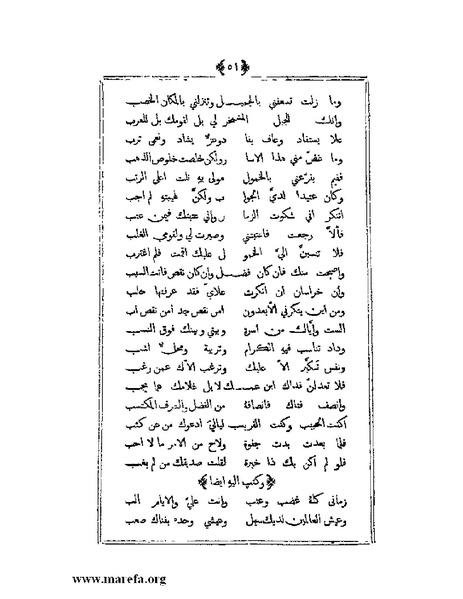 ﴿٥١﴾
وما زلت تسعفني بالجميـ ـل وتنزلني بالمكان الخصب
وإنك للجبل المشمخر لي بل لقومك بل للعرب
علا يستفاد وعاف يفا د وعز يشاد ونعمى ترب
وما غض مني هذا الاسا ر ولكن خلصت خلوص الذهب
ففيم يقرعني بالخمول مولى به نلت اعلى الرتب
وكان عتيدا لدي الجوا ب ولكن لهيبته لم اجب
اتنكر اني شكوت الزما ن واني عتبتك فيمن عتب
فألا رجعت فاعتبتني وصيرت لي ولقومي الغلب
فلا تنسبن الي الخمو ل عليك اقمت فلم اغترب
واصبحت منك فان كان فضل وان كان نقص فانت السبب
وإن خراسان ان انكرت علاي فقد عرفتها حلب
ومن اين ينكرني الأبعدون أمن نقص جد أمن نقص اب
الست واياك من اسرة وبيني وبينك فوق النسب
وداد تناسب فيه الكرام وتربية ومحل اشب
ونفس تكبر الا عليك وترغب الاك عمن رغب
فلا تعدلن فداك ابن عمـ ـك لا بل غلامك عما يجب
وانصف فتاك فانصافه من الفضل والشرف المكتسب
أكنت الحبيب وكنت القريب ليالي ادعوك من عن كثب
فلما بعدت بدت جفوة ولاح من الامر ما لا احب
فلو لم اكن بك ذا خبرة لقلت صديقك من لم يغب
﴿وكتب اليه ايضا﴾
زماني كله غضب وعتب وانت علي والايام الب
وعيش العالمين لديك سهل وعيشي وحده بفناك صعب
www.marefa.org